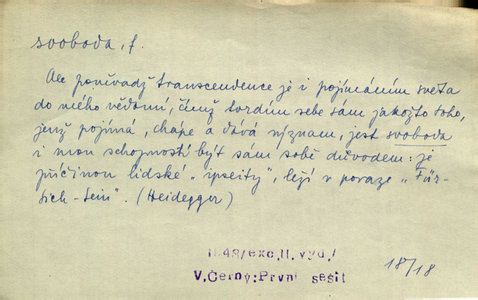 svoboda, f.
Ale poněvadž transcendence je i pojímáním světa
do mého vědomí, čímž tvrdím sebe sám jakožto toho,
jenž pojímá, chápe a dává význam, jest svoboda
i mou schopností být sám sobě důvodem: je
příčinou lidské „ipseity", leží v povaze „Für-
sich-Sein". (Heidegger)
N.48/exc.II.vyd./
V.Černý:První sešit
18/18